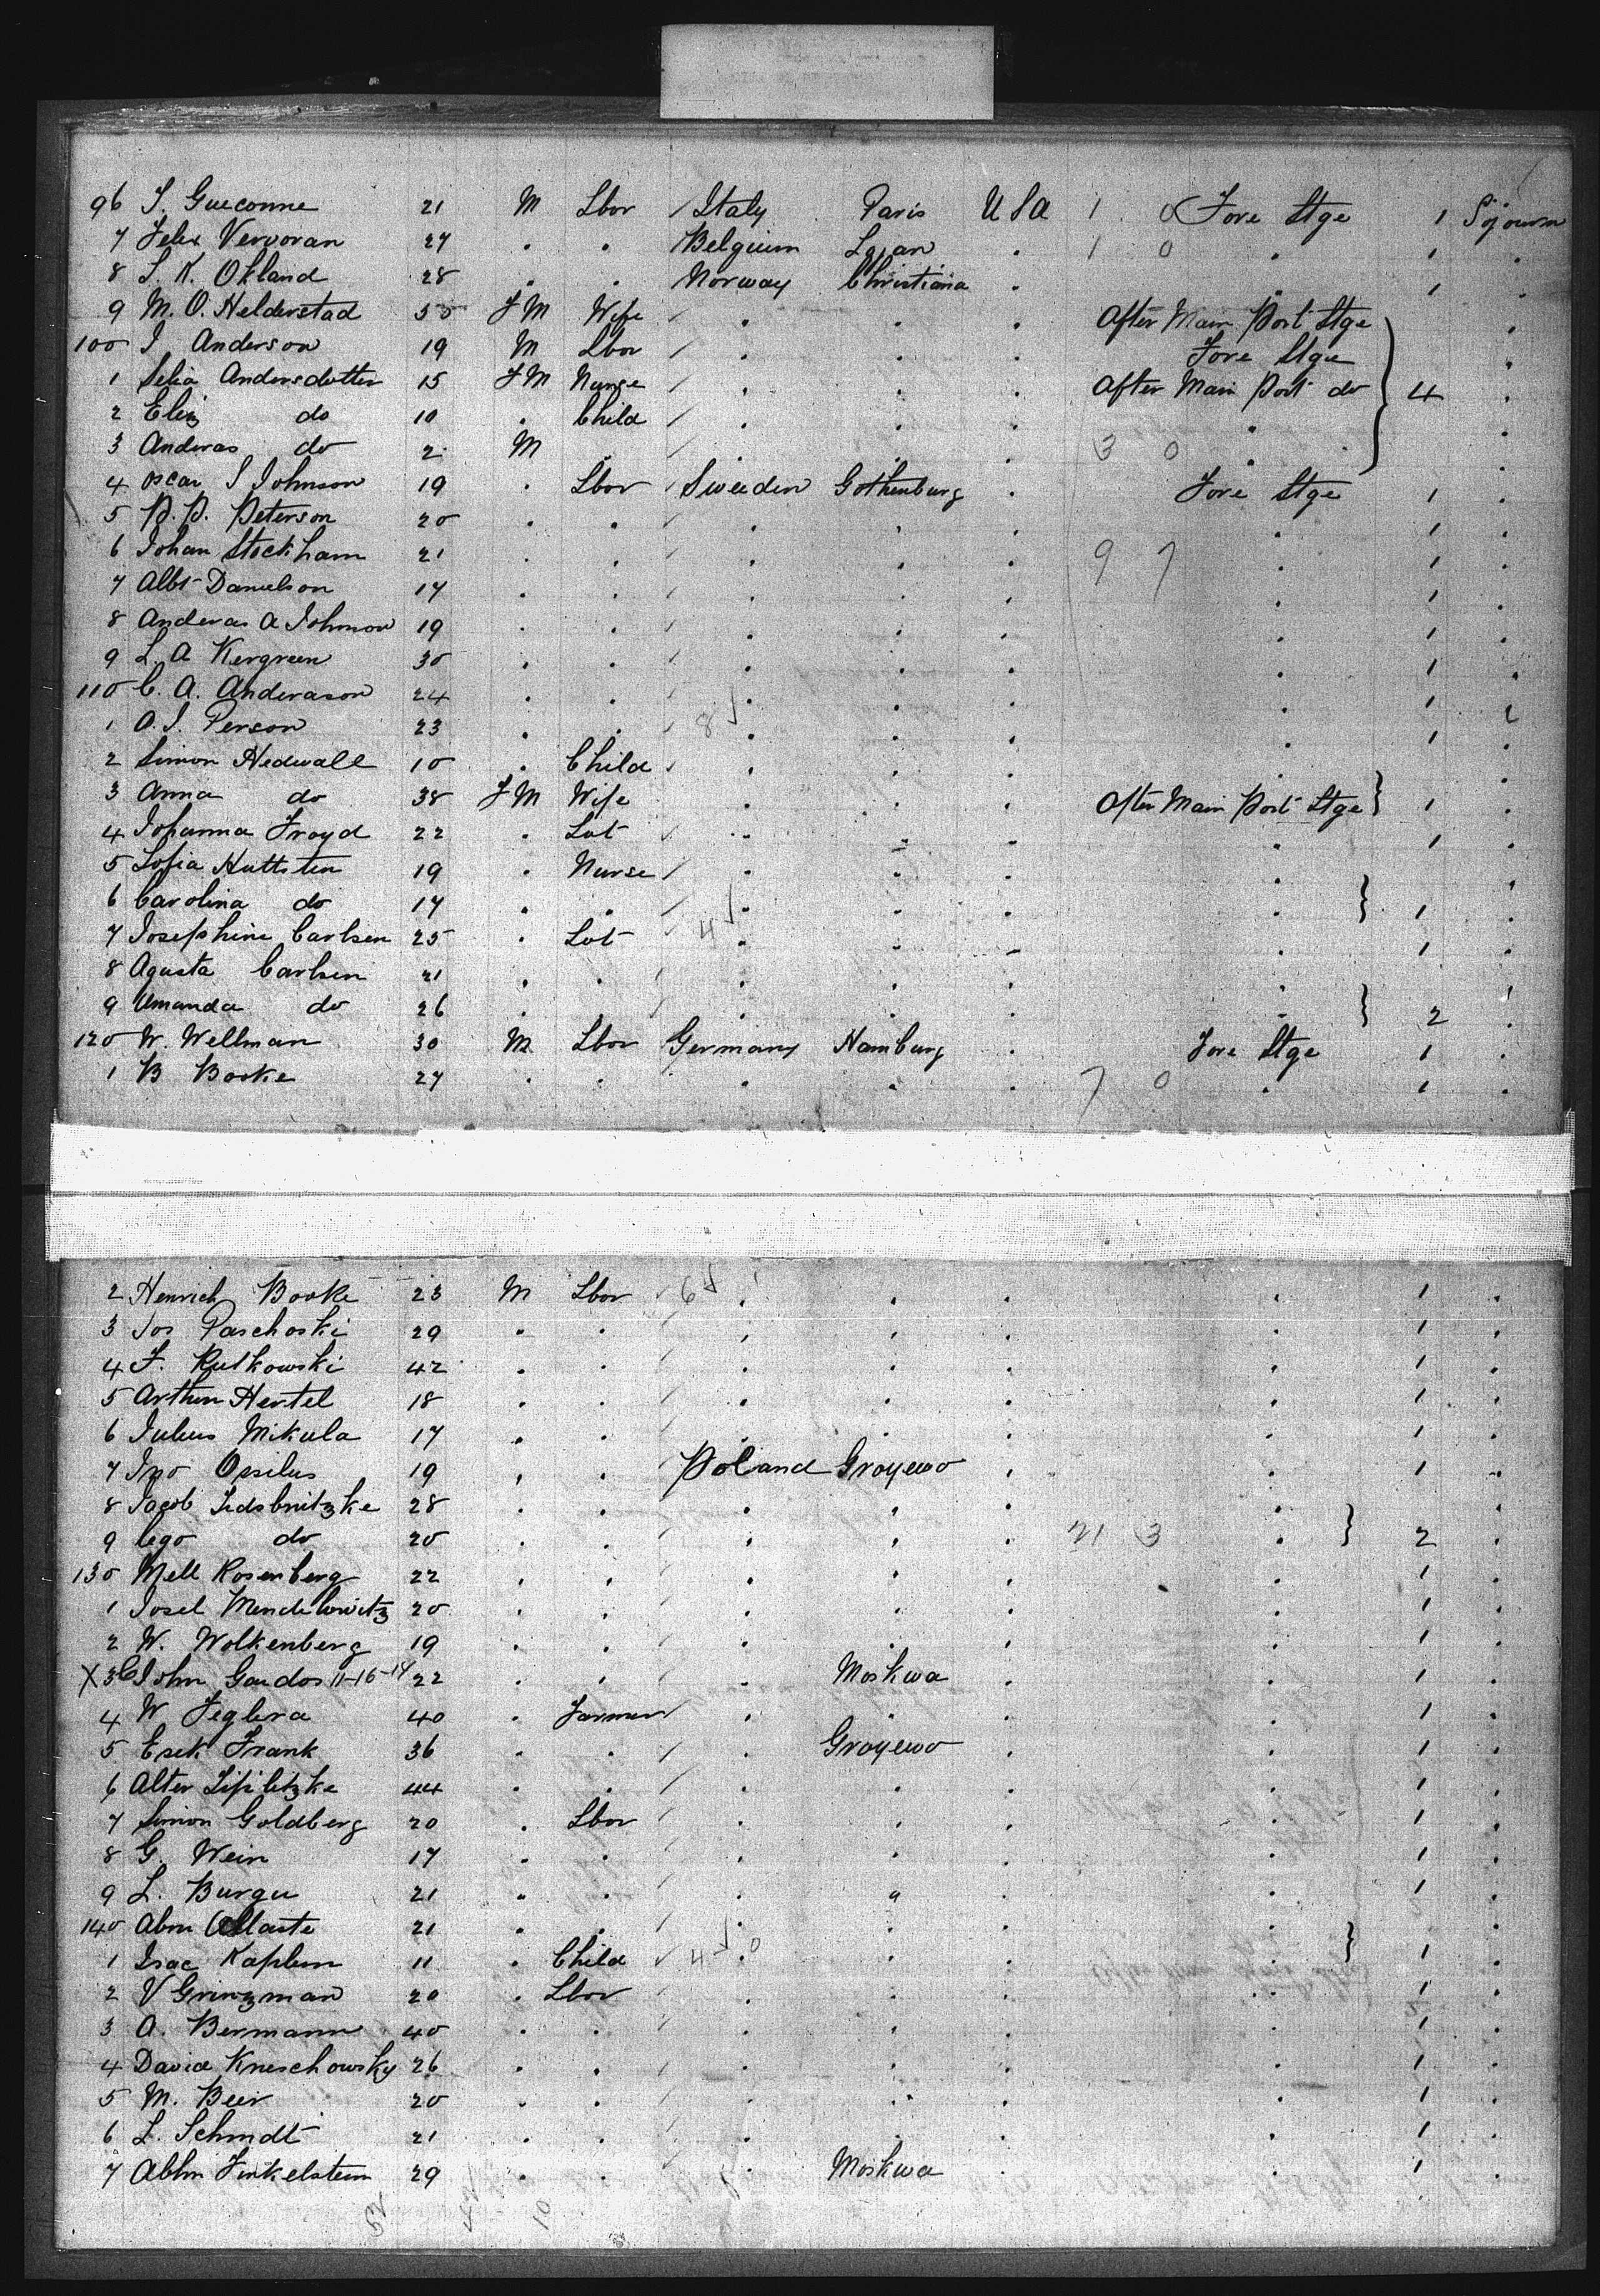 96 J. Gueconne 21 M Lbor Italy Paris U S A 1 0 Fore Stge 1 Sojourn
7 Felix Vervoran 27 " " Belgium " 1 0 " 1 "
8 S. K. Okland 28 " " Norway Christiana " " 1 "
9 M. O. Helderstad 50 F M Wife " " " After Main Port Stge "
100 J Anderson 19 M Lbor " " " Fore Stge "
1 Selia Andersdotter 15 F M Nurse " " " After Main Port do 4 "
2 Eliz do 10 " Child " " " " "
3 Anderas do 2 M " " " " 3 0 " "
4 Oscar S Johnson 19 " Lbor Sweeden Gothenburg " Fore Stge 1 "
5 P. P. Peterson 20 " " " " " " 1 "
6 Johan Stockham 21 " " " " " 9 7 " 1 "
7 Albt Danielson 17 " " " " " " 1 "
8 Anderas A Johnson 19 " " " " " " 1 "
9 L. A Kergreen 30 " " " " " " 1 "
110 C. A. Anderason 24 " " " " " " 1 "
1 O. J. Person 23 " " 8 " " " " 1 "
2 Simon Hedwall 10 " Child " " " " "
3 Anna do 38 F M Wife " " " After Main Port Stge 1 "
4 Johanna Froyd 22 " " " " " 1 "
5 Sofia Huttsten 19 " Nurse " " " " "
6 Carolina do 17 " " " " " " 1 "
7 Josephine Carlsen 25 " 4 " " " " 1 "
8 Agusta Carlsen 21 " " " " " " "
9 Amanda do 26 " " " " " " 2 "
120 W. Wellman 30 M Lbor Germany Hamburg " Fore Stge 1 "
1 B Booke 27 " " " " " 7 0 " 1 "
2 Henrich Booke 23 M Lbor 6 " " " " 1 "
3 Jos Paschoski 29 " " " " " " 1 "
4 F. Rutkowski 42 " " " " " " 1 "
5 Arthur Hertel 18 " " " " " " 1 "
6 Julius Mikula 17 " " " " " " 1 "
7 Jno Ossilus 19 " " Poland Groyewo " " 1 "
8 Jacob 28 " " " " " " "
9 do 20 " " " " " 21 3 " 2 "
130 Mell Rosenberg 22 " " " " " " 1 "
1 Josel Mendelowitz 20 " " " " " " 1 "
2 W. Wolkenberg 19 " " " " " " 1 "
X 3 C John Gardos 11-16-14 22 " " " Moskwa " " 1 "
4 W Feglera 40 " Farmer " " " " 1 "
5 Esek Frank 36 " " " Groyewo " " 1 "
6 Alter Lipiletzke 44 " " " " " " 1 "
7 Simon Goldberg 20 " Lbor " " " " 1 "
8 G. Wein 17 " " " " " " 1 "
9 L. Burgu 21 " " " " " " 1 "
140 Abm 21 " " " " " " "
1 Isac Kaplem 11 " Child 4 0 " " " " 1 "
2 V Grinzman 20 " Lbor " " " " 1 "
3 A. Bermann 40 " " " " " " 1 "
4 David Kneschowsky 26 " " " " " " 1 "
5 M. Beer 20 " " " " " " 1 "
6 L. Schmidt 21 " " " " " " 1 "
7 Abhm Finkelstein 29 " " " Moskwa " " 1 "